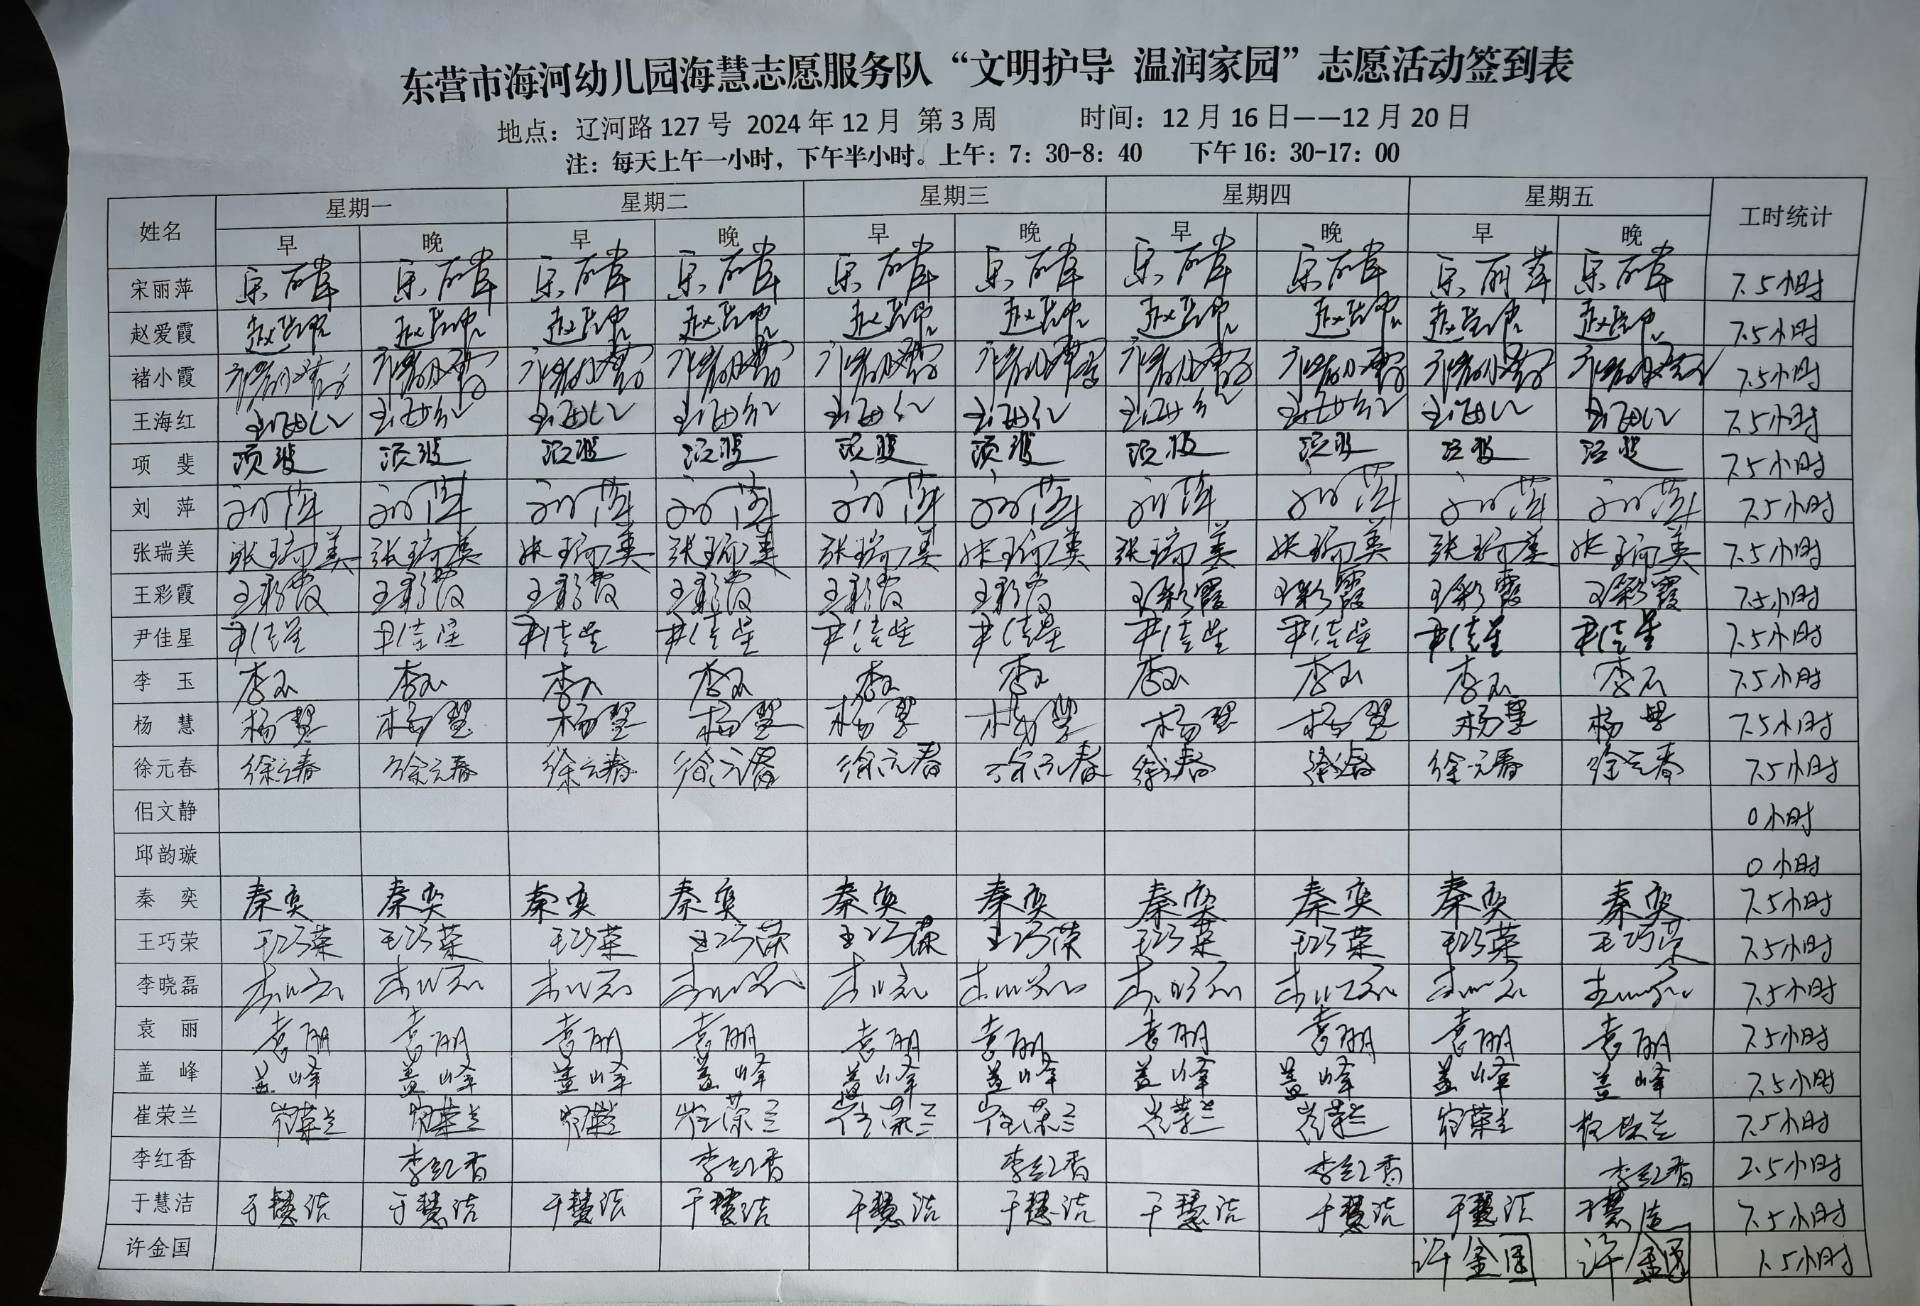 东营市海河幼儿园海慧志愿服务队“文明护导 温润家园”志愿活动签到表
地点：辽河路 127 号 2024 年 12 月 第 3 周 时间：12 月 16 日——12 月 20 日
注：每天上午一小时，下午半小时。上午：7：30-8：40 下午 16：30-17：00
姓名 星期一 星期二 星期三 星期四 星期五 工时统计
早 晚 早 晚 早 晚 早 晚 早 晚
宋丽萍 宋丽萍 宋丽萍 宋丽萍 宋丽萍 宋丽萍 宋丽萍 宋丽萍 宋丽萍 宋丽萍 宋丽萍 7.5小时
赵爱霞 赵爱霞 赵爱霞 赵爱霞 赵爱霞 赵爱霞 赵爱霞 赵爱霞 赵爱霞 赵爱霞 赵爱霞 7.5小时
褚小霞 褚小霞 褚小霞 褚小霞 褚小霞 褚小霞 褚小霞 褚小霞 褚小霞 褚小霞 褚小霞 7.5小时
王海红 王海红 王海红 王海红 王海红 王海红 王海红 王海红 王海红 王海红 王海红 7.5小时
项 斐 项斐 项斐 项斐 项斐 项斐 项斐 项斐 项斐 项斐 项斐 7.5小时
刘 萍 刘萍 刘萍 刘萍 刘萍 刘萍 刘萍 刘萍 刘萍 刘萍 刘萍 7.5小时
张瑞美 张瑞美 张瑞美 张瑞美 张瑞美 张瑞美 张瑞美 张瑞美 张瑞美 张瑞美 张瑞美 7.5小时
王彩霞 王彩霞 王彩霞 王彩霞 王彩霞 王彩霞 王彩霞 王彩霞 王彩霞 王彩霞 王彩霞 7.5小时
尹佳星 尹佳星 尹佳星 尹佳星 尹佳星 尹佳星 尹佳星 尹佳星 尹佳星 尹佳星 尹佳星 7.5小时
李 玉 李玉 李玉 李玉 李玉 李玉 李玉 李玉 李玉 李玉 李玉 7.5小时
杨 慧 杨慧 杨慧 杨慧 杨慧 杨慧 杨慧 杨慧 杨慧 杨慧 杨慧 7.5小时
徐元春 徐元春 徐元春 徐元春 徐元春 徐元春 徐元春 徐元春 徐元春 徐元春 徐元春 7.5小时
佀文静 0小时
邱韵璇 0小时
秦 奕 秦奕 秦奕 秦奕 秦奕 秦奕 秦奕 秦奕 秦奕 秦奕 秦奕 7.5小时
王巧荣 王巧荣 王巧荣 王巧荣 王巧荣 王巧荣 王巧荣 王巧荣 王巧荣 王巧荣 王巧荣 7.5小时
李晓磊 李晓磊 李晓磊 李晓磊 李晓磊 李晓磊 李晓磊 李晓磊 李晓磊 李晓磊 李晓磊 7.5小时
袁 丽 袁丽 袁丽 袁丽 袁丽 袁丽 袁丽 袁丽 袁丽 袁丽 袁丽 7.5小时
盖 峰 盖峰 盖峰 盖峰 盖峰 盖峰 盖峰 盖峰 盖峰 盖峰 盖峰 7.5小时
崔荣兰 崔荣兰 崔荣兰 崔荣兰 崔荣兰 崔荣兰 崔荣兰 崔荣兰 崔荣兰 崔荣兰 崔荣兰 7.5小时
李红香 李红香 李红香 李红香 李红香 李红香 2.5小时
于慧洁 于慧洁 于慧洁 于慧洁 于慧洁 于慧洁 于慧洁 于慧洁 于慧洁 于慧洁 于慧洁 7.5小时
许金国 许金国 许金国 1.5小时